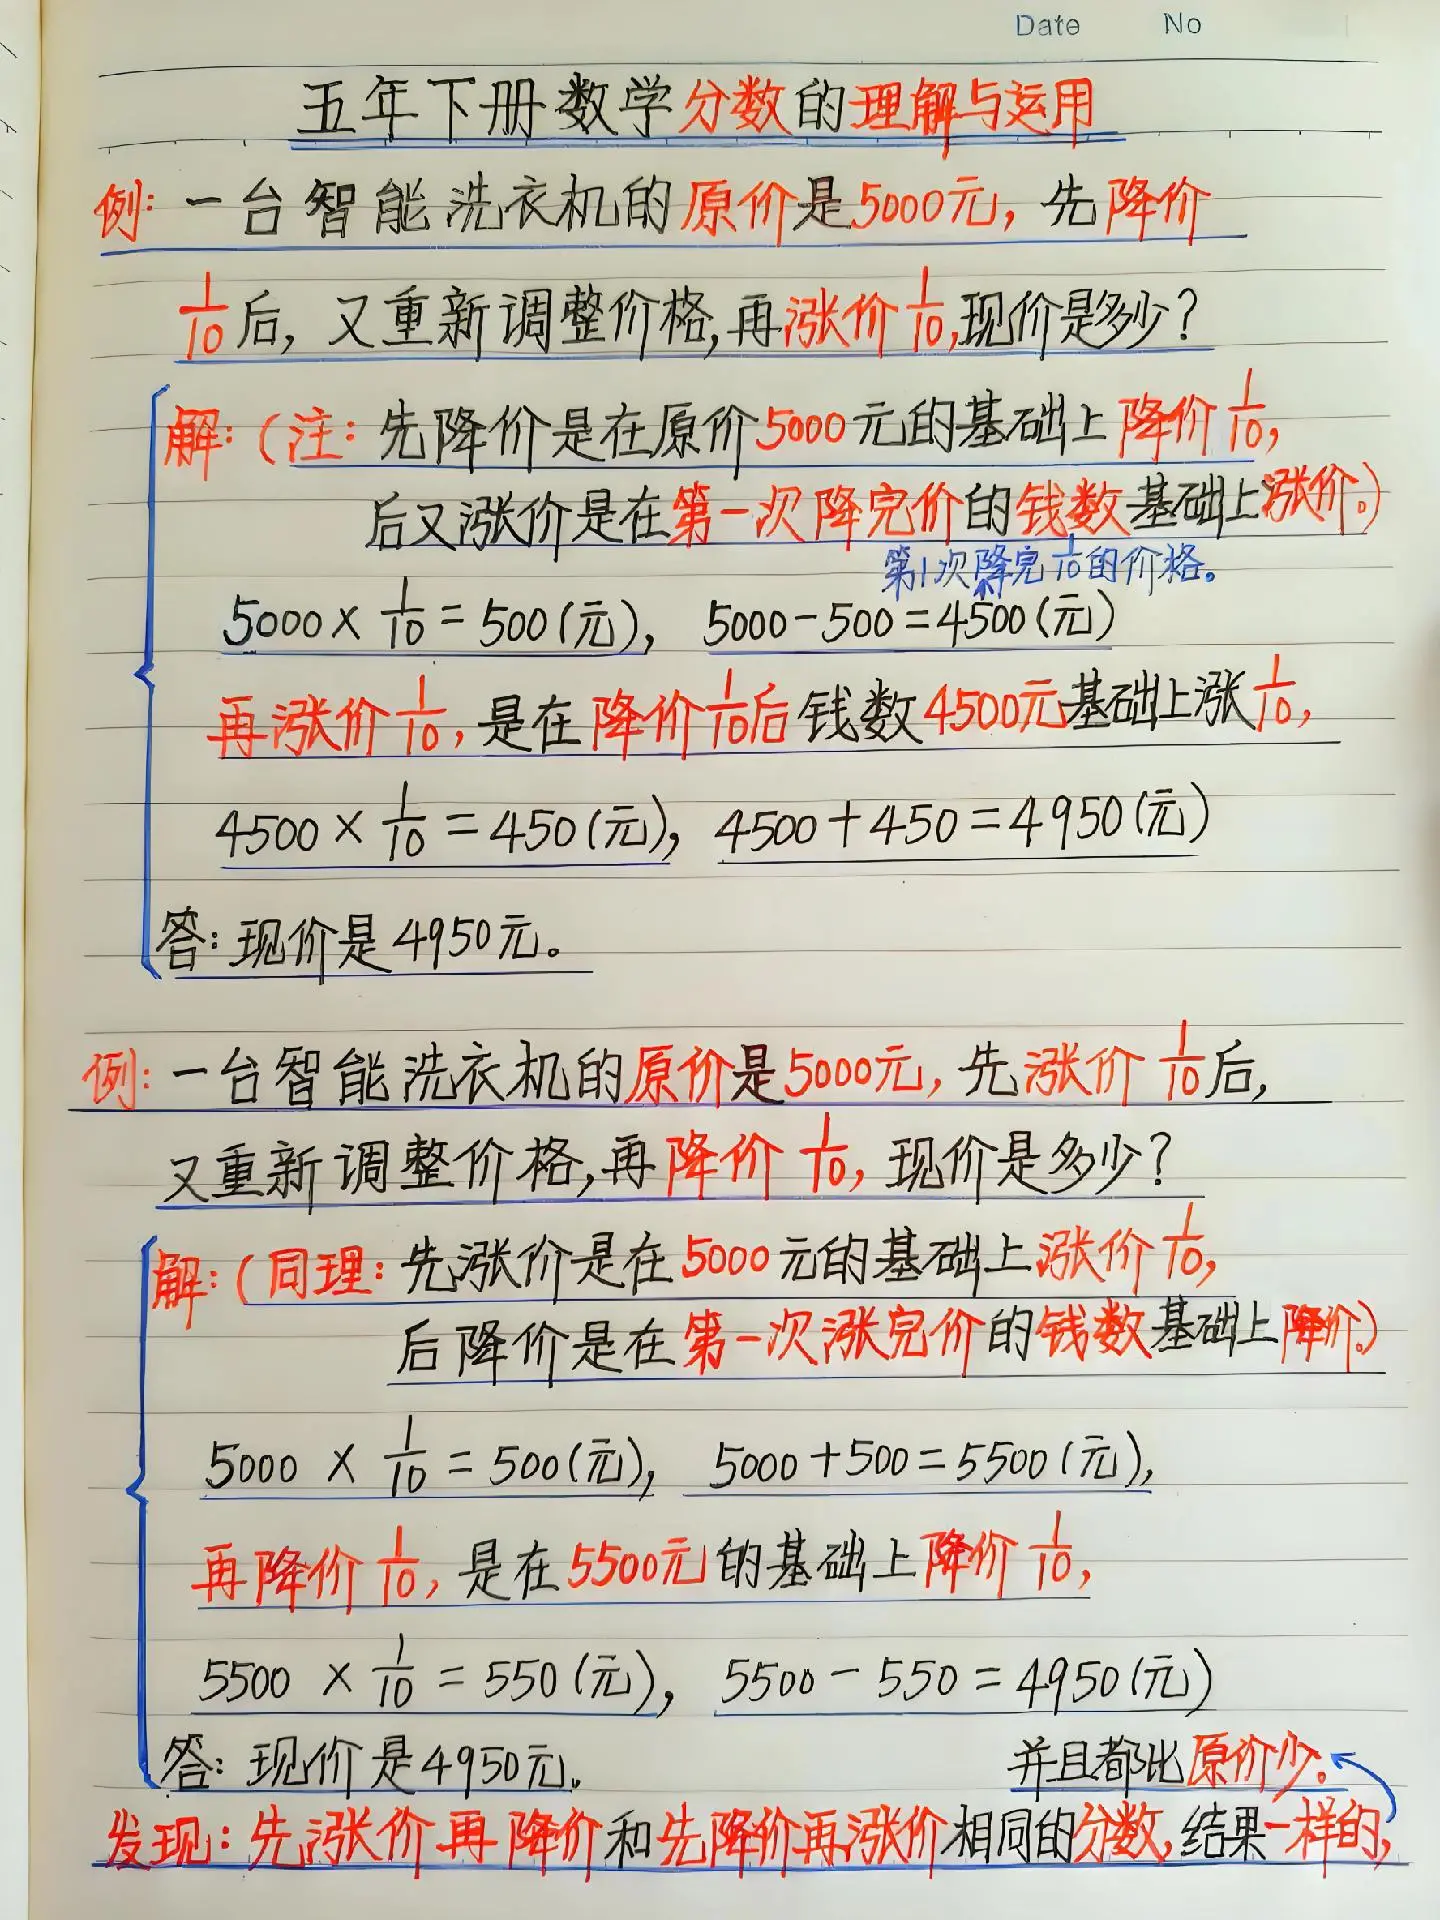 Date No
五年下册数学分数的理解与运用
例:一台智能洗衣机的原价是5000元,先降价
1/10后,又重新调整价格,再涨价1/10,现价是多少?
解:(注:先降价是在原价5000元的基础上降价1/10,
后又涨价是在第一次降完价的钱数基础上涨价。)
第1次降完1/10的价格。
5000×1/10=500(元), 5000-500=4500(元)
再涨价1/10,是在降价1/10后钱数4500元基础上涨1/10,
4500×1/10=450(元), 4500+450=4950(元)
答:现价是4950元。
例:一台智能洗衣机的原价是5000元,先涨价1/10后,
又重新调整价格,再降价1/10,现价是多少?
解:(同理:先涨价是在5000元的基础上涨价1/10,
后降价是在第一次涨完价的钱数基础上降价。)
5000×1/10=500(元), 5000+500=5500(元),
再降价1/10,是在5500元的基础上降价1/10,
5500×1/10=550(元), 5500-550=4950(元)
答:现价是4950元。
发现:先涨价再降价和先降价再涨价相同的分数,结果一样的,
并且都比原价少。